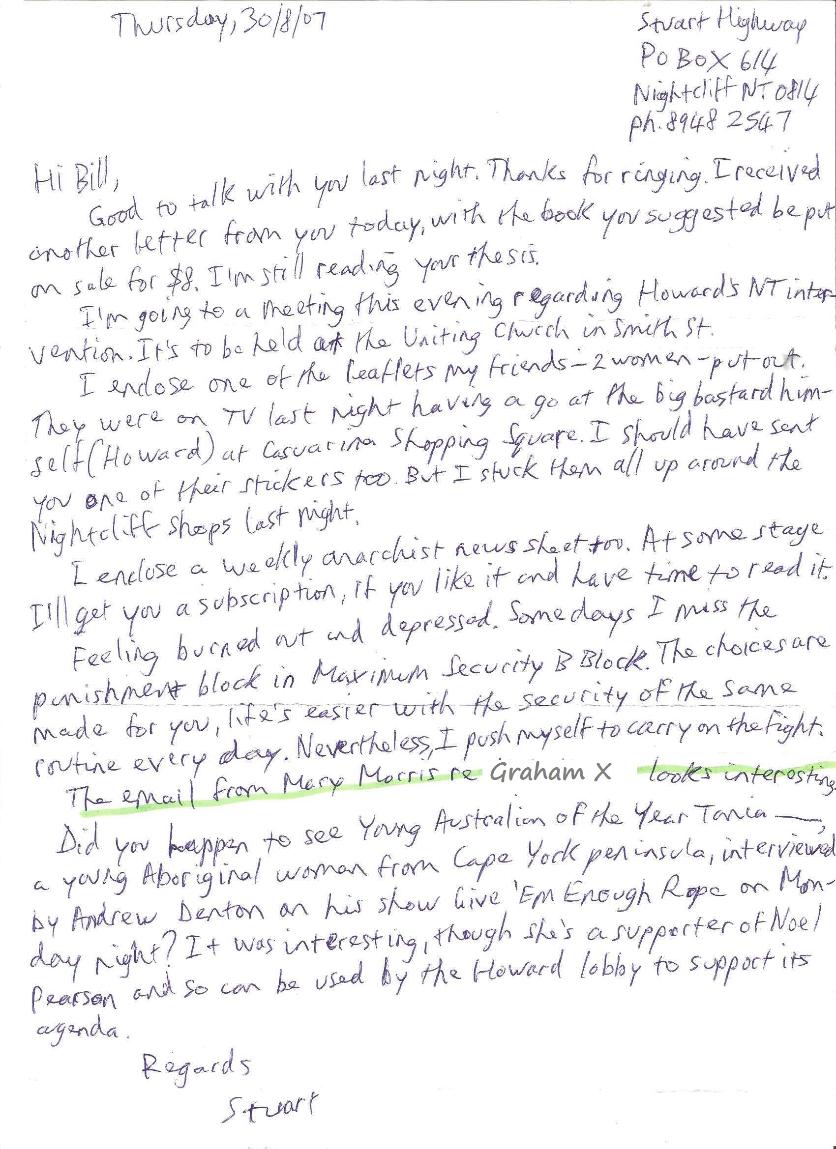 Thursday, 30/8/07
Stuart Highway
PO BOX 614
Nightcliff NT 0814
ph. 8948 2547
Hi Bill,
Good to talk with you last night. Thanks for ringing. I received
another letter from you today, with the book you suggested be put
on sale for $8. I'm still reading your thesis.
I'm going to a meeting this evening regarding Howard's NT inter-
vention. It's to be held at the Uniting Church in Smith St.
I enclose one of the leaflets my friends – 2 women – put out.
They were on TV last night having a go at the big bastard him-
self (Howard) at Casuarina Shopping Square. I should have sent
you one of their stickers too. But I stuck them all up around the
Nightcliff shops last night.
I enclose a weekly anarchist news sheet too. At some stage
I'll get you a subscription, if you like it and have time to read it.
Feeling burned out and depressed. Some days I miss the
punishment block in Maximum Security B Block. The choices are
made for you, life's easier with the security of the same
routine every day. Nevertheless, I push myself to carry on the fight.
The email from Mary Morris re Graham X looks interesting.
Did you happen to see Young Australian of the Year Tania —,
a young Aboriginal woman from Cape York peninsula, interviewed
by Andrew Denton on his show Give 'Em Enough Rope on Mon-
day night? It was interesting, though she's a supporter of Noel
Pearson and so can be used by the Howard lobby to support its
agenda.
Regards
Stuart